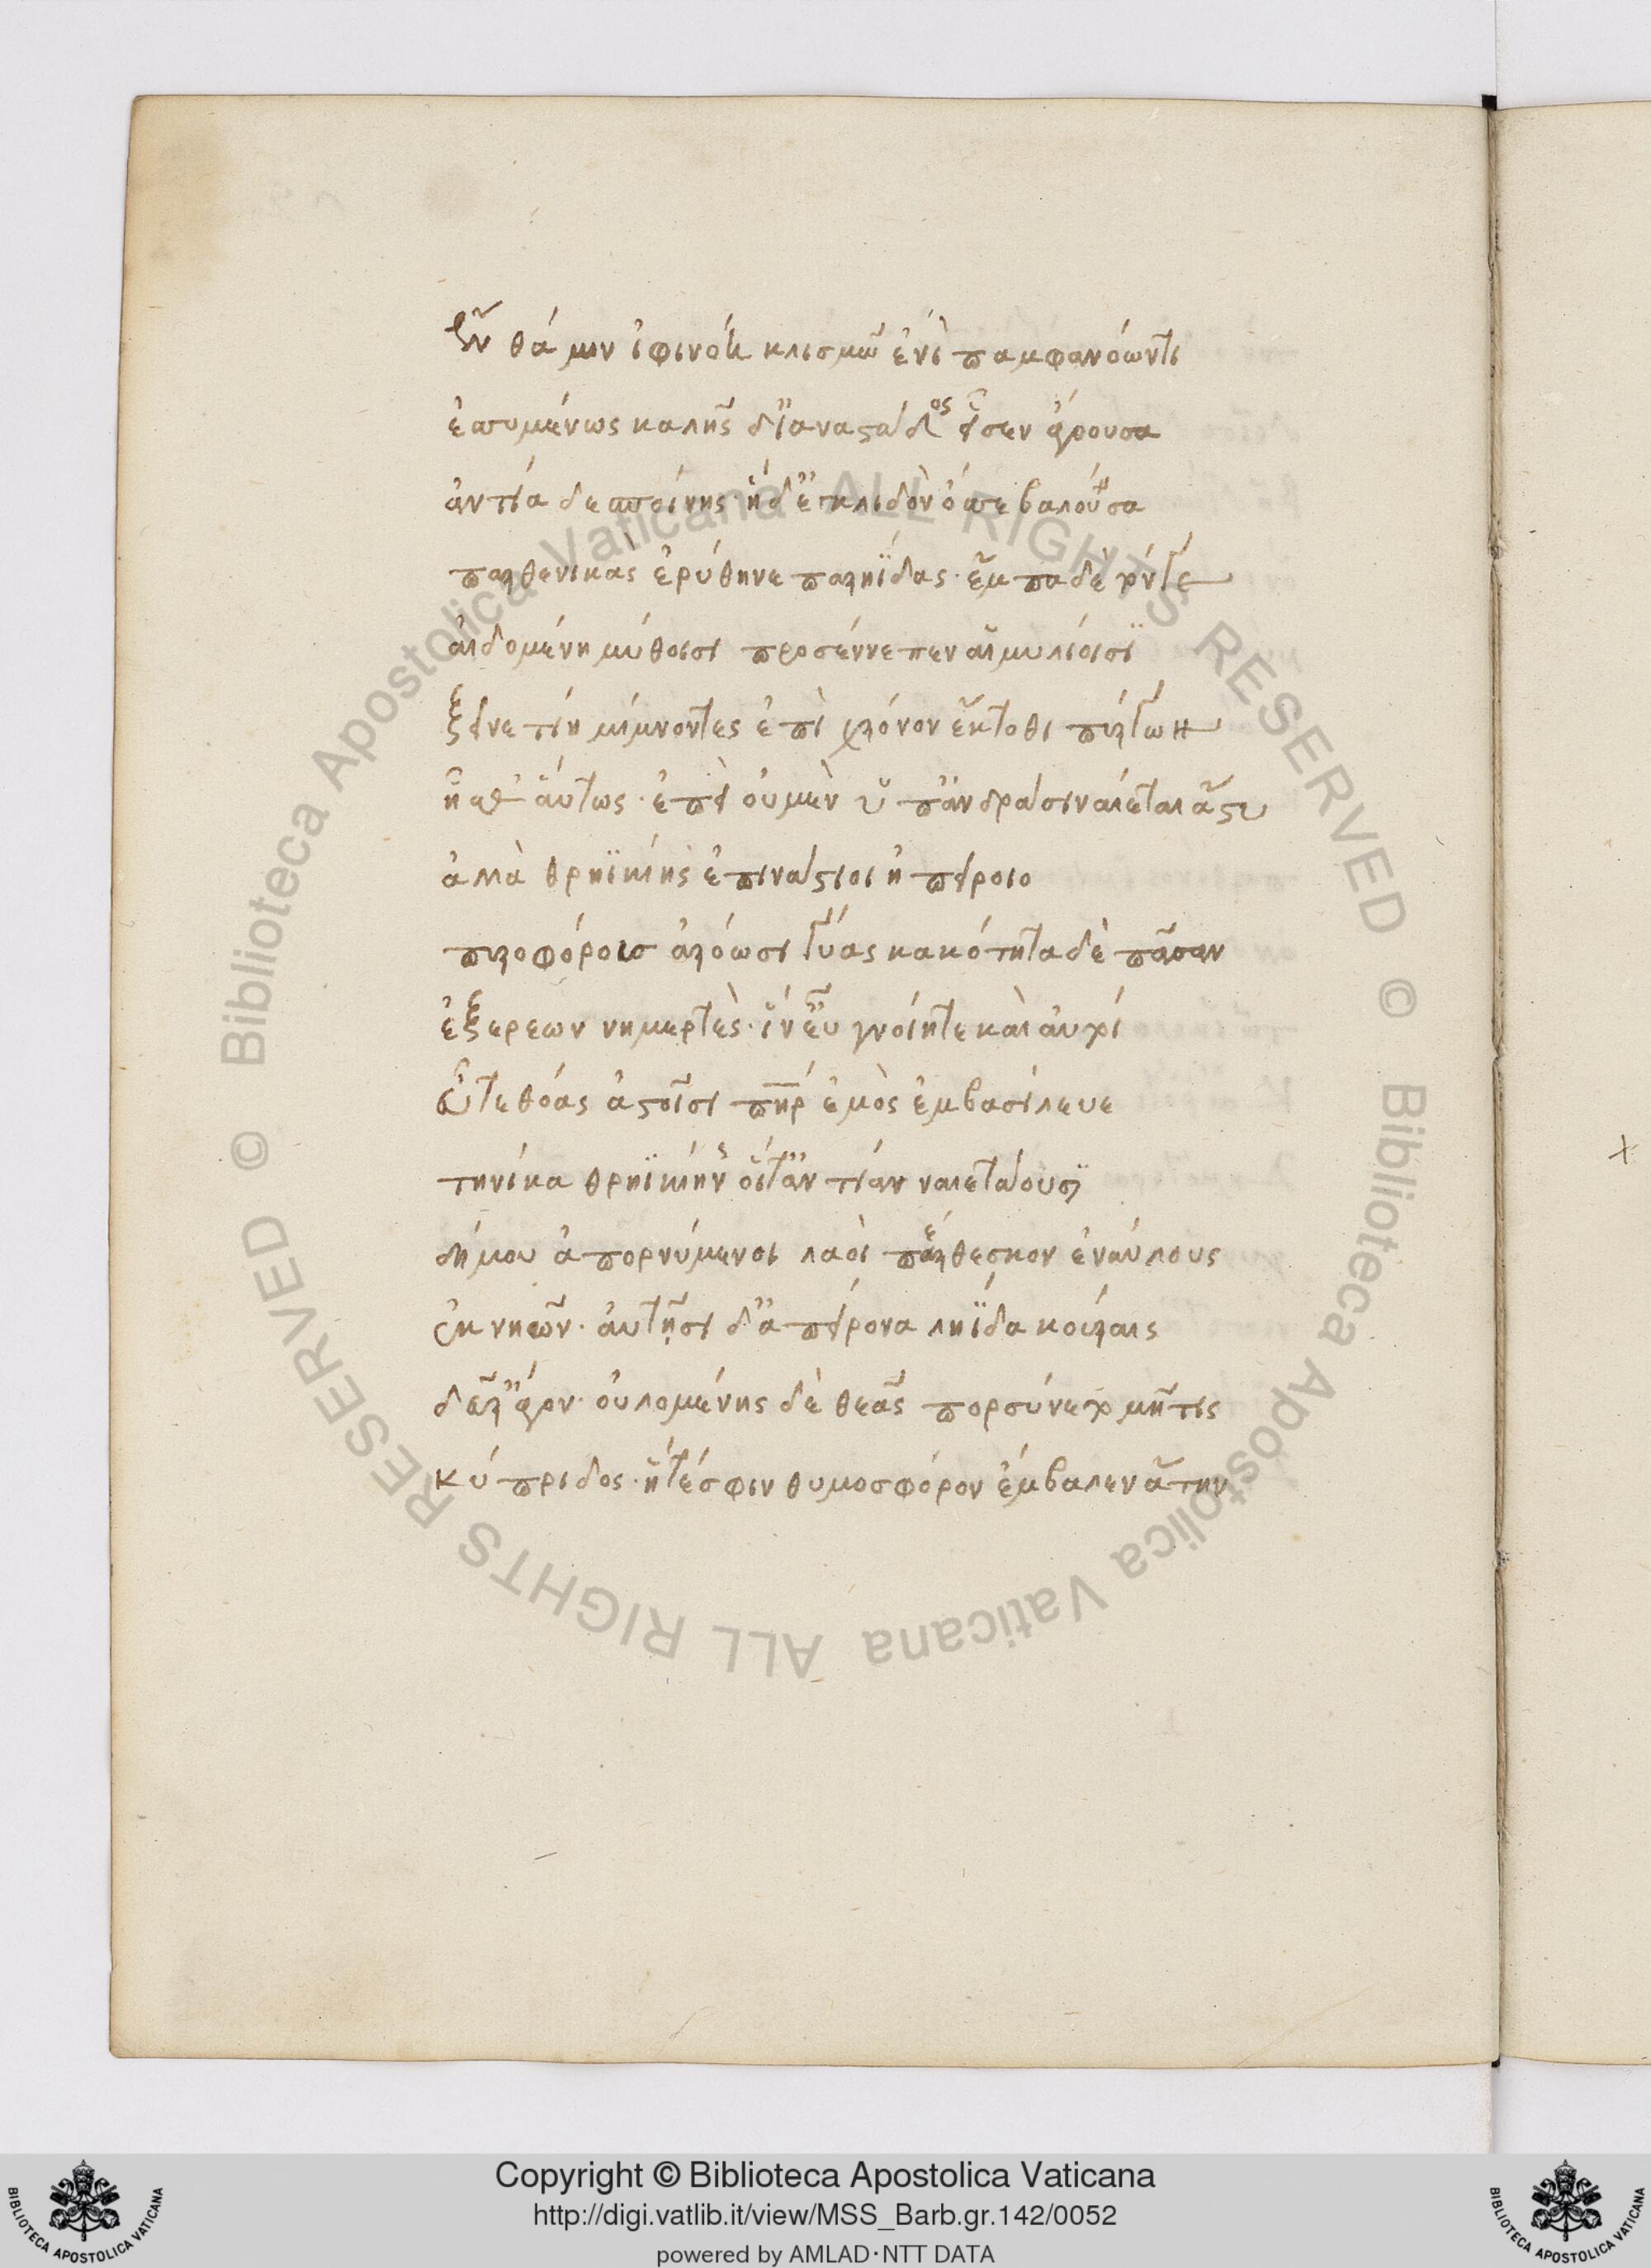 Ἔνθά μιν ἰφινόη κλισμῶ ἐνὶ παμφανόωντι
ἐσσυμένως καλῆς διὰ παστάδος εἷσεν ἄγουσα
ἀντία δεσποίνης· ἡ δ' ἐγκλιδὸν ὄσσε βαλοῦσα
παρθενικὰς ἐρύθηνε παρηΐδας· ἔμπα δὲ τόνγε
αἰδομένη μύθοισι προσέννεπεν αἱμυλίοισϊ
ξεῖνε τίη μίμνοντες ἐπὶ χρόνον ἔκτοθι πύργων
ἧσθ' αὔτως· ἐπεὶ οὐ μὲν ὑπ' ἀνδράσι ναίεται ἄστυ
ἀλλὰ θρηϊκίης ἐπινάστιοι ἠπείροιο
πυροφόρους ἀρόωσι γύας κακότητα δὲ πᾶσαν
ἐξερέων νημερτὲς· ἵν' εὖ γνοίητε καὶ αὐτοί
εὖτε θόας ἀστοῖσι πηρ ἐμὸς ἐμβασίλευε
τηνίκα θρηϊκίην οἵτ' ἀντίαν ναιετάουσϊ
δήμου ἀπορνύμενοι λαοὶ πέρθεσκον ἐναύλους
ἐκ νηῶν· αὐτῇσι δ' ἀπείρονα ληΐδα κούραις
δεῦρ' ἄγον· οὐλομένης δὲ θεᾶς πορσύνετο μῆτις
κύπριδος· ἥτε σφιν θυμοσφόρον ἔμβαλεν ἄτην
Copyright © Biblioteca Apostolica Vaticana
http://digi.vatlib.it/view/MSS_Barb.gr.142/0052
powered by AMLAD·NTT DATA
© Biblioteca Apostolica Vaticana ALL RIGHTS RESERVED
© Biblioteca Apostolica Vaticana ALL RIGHTS RESERVED
BIBLIOTECA APOSTOLICA VATICANA
BIBLIOTECA APOSTOLICA VATICANA